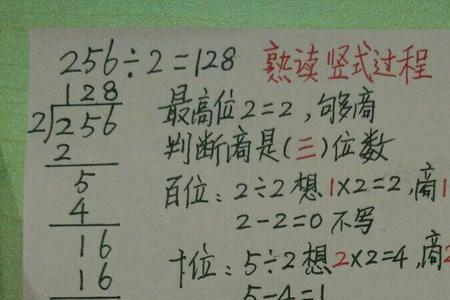 256÷2=128 熟读竖式过程
128
2 256
2
5
4
16
16
最高位2=2,够商
判断商是(三)位数
百位:2÷2想1×2=2,商1
2-2=0 不写
十位:5÷2想2×2=4,商2
5-4=1